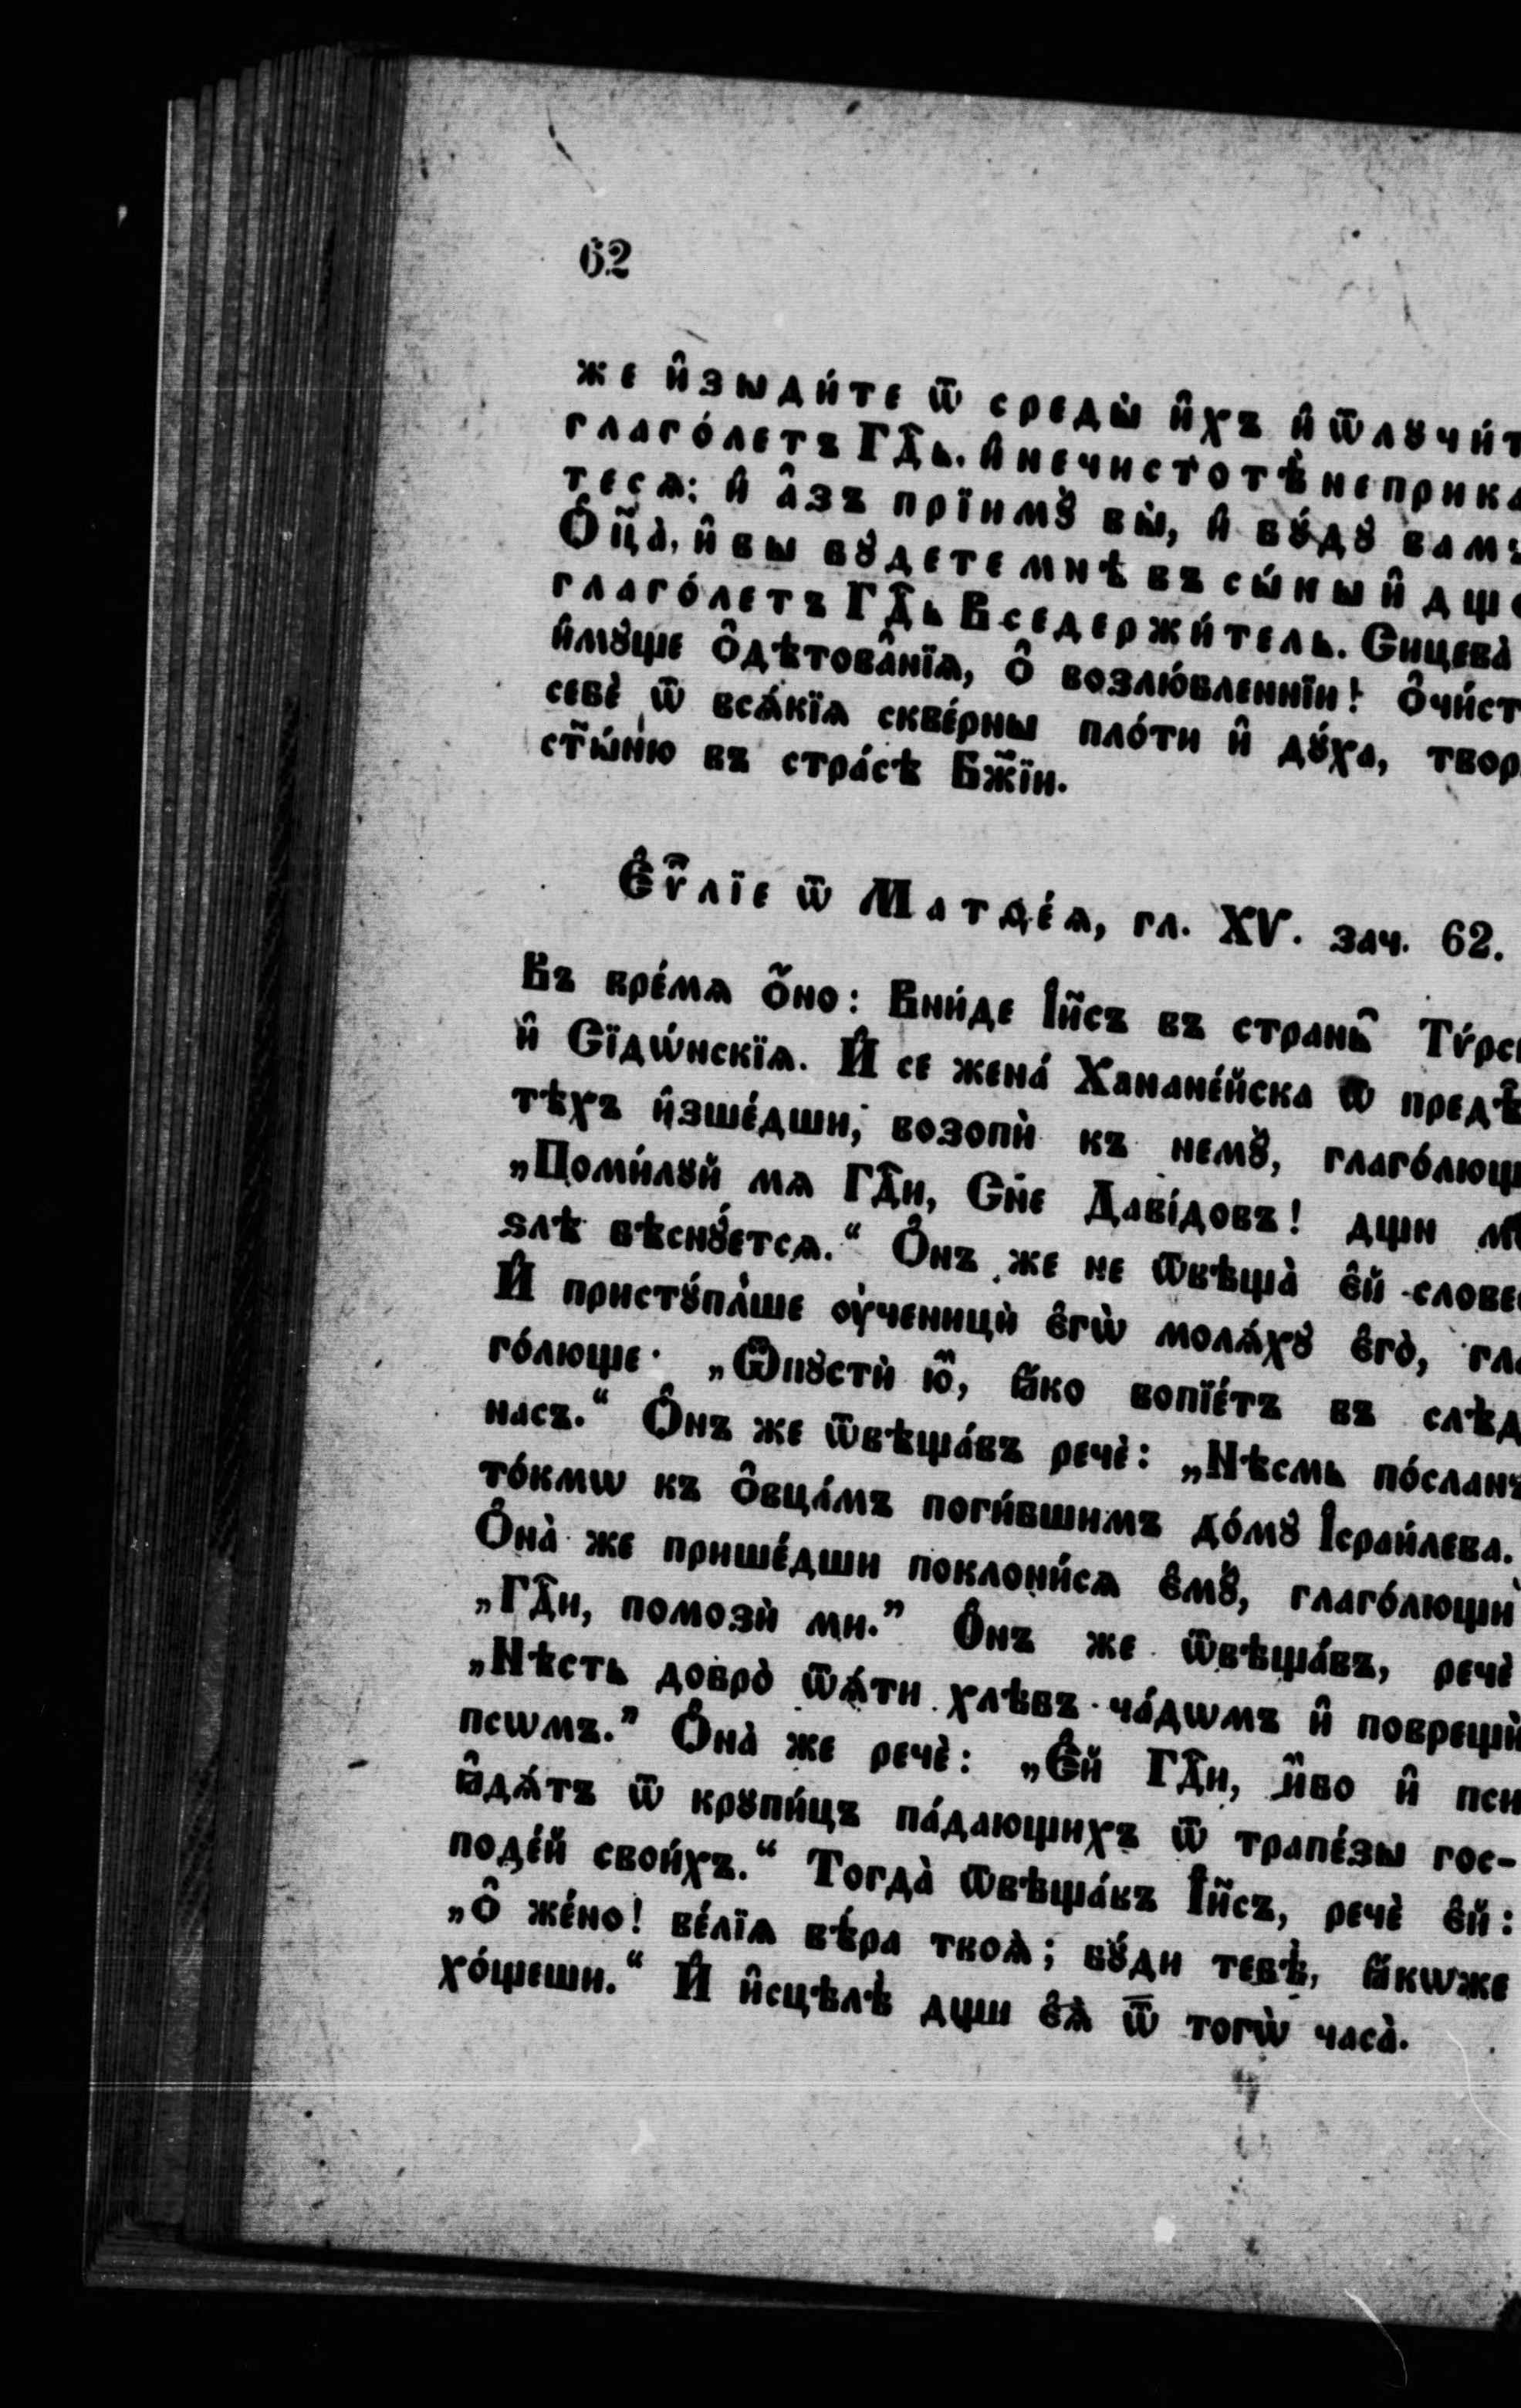 62
же и҆зыди́те ѿ среды̀ и҆хъ и҆ ѿлꙋчи́т
глаго́летъ Гдⷭ҇ь. и҆ нечистотѣ̀ не прика
тесѧ: и҆ а҆́зъ прїимꙋ̀ вы̀, и҆ бꙋ́дꙋ вамъ
Ѻ҆ц҃а̀, и҆ вы бꙋдете мнѣ въ сы́ны и҆ дщє
глаго́летъ Гдⷭ҇ь Вседержи́тель. Сицева̀
и҆мꙋще ѻ҆бѣтова̑нїѧ, ѽ возлю́бленнїи! Ѻ҆чи́ст
себѐ ѿ всѧ́кїѧ скве́рны пло́ти и҆ дꙋ́ха, твор
ст҃ы́ню въ стра́сѣ Бж҃їи.
Є҆ѵⷢ҇лїе ѿ Матѳе́ѧ, гл. XV. зач. 62.
Въ вре́мѧ ѻ҆́но: Вни́де І҆и҃съ въ страны̑ Тѵ́рс
и҆ Сїдѡ́нскїѧ. И҆ се жена́ Ханане́йска ѿ предѣ̑
тѣхъ и҆зше́дши, возопѝ къ немꙋ̀, глаго́лющ
„Поми́лꙋй мѧ Гдⷭ҇и, Сн҃е Даві́довъ! дщи м
ѕлѣ бѣснꙋ́етсѧ.“ Ѻ҆́нъ же не ѿвѣща̀ є҆й слове
И҆ пристꙋ́пльше ᲂу҆ченицѝ є҆гѡ̀ молѧ́хꙋ є҆го̀, гла
го́люще: „Ѿпꙋстѝ ю҆̀, ꙗ҆́ко вопїе́тъ въ слѣд
насъ.“ Ѻ҆́нъ же ѿвѣща́въ речѐ: „Нѣ́смь по́сланъ
то́кмѡ къ ѻ҆вца́мъ поги́бшимъ до́мꙋ І҆сраи́лева.
Ѻ҆на̀ же прише́дши поклони́сѧ є҆мꙋ̀, глаго́лющи
„Гдⷭ҇и, помозѝ ми.” Ѻ҆́нъ же ѿвѣща́въ, речѐ
„Нѣ́сть добро̀ ѿѧ́ти хлѣ́бъ ча́дѡмъ и҆ поврещѝ
псѡмъ.” Ѻ҆на̀ же речѐ: „Є҆́й Гдⷭ҇и, и҆́бо и҆ пси
ꙗ҆дѧ́тъ ѿ крꙋпи́цъ па́дающихъ ѿ трапе́зы гос-
поде́й свои́хъ.“ Тогда̀ ѿвѣща́въ І҆и҃съ, речѐ є҆й:
„Ѽ же́но! ве́лїѧ вѣ́ра твоѧ̀; бꙋ́ди тебѣ̀, ꙗ҆́кѡже
хо́щеши.“ И҆ и҆сцѣлѣ̀ дщи є҆ѧ̀ ѿ тогѡ̀ часа̀.